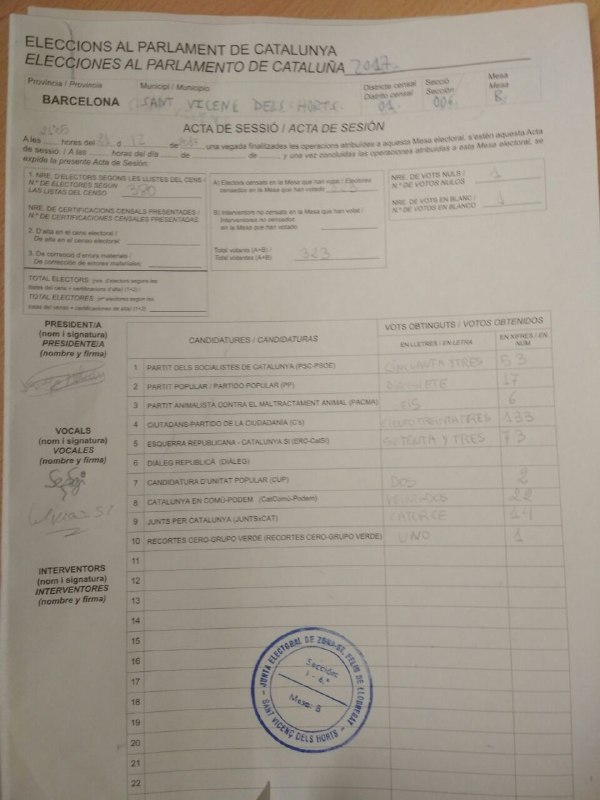 ELECCIONS AL PARLAMENT DE CATALUNYA
ELECCIONES AL PARLAMENTO DE CATALUÑA 2017
Província / Provincia Municipi / Municipio Districte censal Secció Mesa
Distrito censal Sección Mesa
BARCELONA SANT VICENÇ DELS HORTS 01 006 B
ACTA DE SESSIÓ / ACTA DE SESIÓN
A les hores del d 12 de una vegada finalitzades les operacions atribuïdes a aquesta Mesa electoral, s'estén aquesta Acta
de sessió. / A las horas del día de de y una vez concluidas las operaciones atribuidas a esta Mesa electoral, se
expide la presente Acta de Sesión:
1. NRE. D'ELECTORS SEGONS LES LLISTES DEL CENS /
N.º DE ELECTORES SEGÚN
LAS LISTAS DEL CENSO 380
NRE. DE CERTIFICACIONS CENSALS PRESENTADES /
N.º DE CERTIFICACIONES CENSALES PRESENTADAS
2. D'alta en el cens electoral /
De alta en el censo electoral:
3. De correcció d'errors materials /
De corrección de errores materiales:
TOTAL ELECTORS (nre. d'electors segons les
llistes del cens + certificacions d'alta) (1+2) /
TOTAL ELECTORES (nº electores según las
listas del censo + certificaciones de alta) (1+2)
A) Electors censats en la Mesa que han votat / Electores
censados en la Mesa que han votado
B) Interventors no censats en la Mesa que han votat /
Interventores no censados
en la Mesa que han votado
Total votants (A+B) /
Total votantes (A+B) 323
NRE. DE VOTS NULS / 1
N.º DE VOTOS NULOS
NRE. DE VOTS EN BLANC / 1
N.º DE VOTOS EN BLANCO
PRESIDENT/A
(nom i signatura)
PRESIDENTE/A
(nombre y firma)
VOCALS
(nom i signatura)
VOCALES
(nombre y firma)
INTERVENTORS
(nom i signatura)
INTERVENTORES
(nombre y firma)
CANDIDATURES / CANDIDATURAS VOTS OBTINGUTS / VOTOS OBTENIDOS
EN LLETRES / EN LETRA EN XIFRES / EN NÚM
1 PARTIT DELS SOCIALISTES DE CATALUNYA (PSC-PSOE) CINCUANTA Y TRES 53
2 PARTIT POPULAR / PARTIDO POPULAR (PP) DIECISIETE 17
3 PARTIT ANIMALISTA CONTRA EL MALTRACTAMENT ANIMAL (PACMA) SEIS 6
4 CIUTADANS-PARTIDO DE LA CIUDADANÍA (C's) CIENTO TREINTA TRES 133
5 ESQUERRA REPUBLICANA - CATALUNYA SÍ (ERC-CatSí) SETENTA Y TRES 73
6 DIÀLEG REPUBLICÀ (DIÀLEG)
7 CANDIDATURA D'UNITAT POPULAR (CUP) DOS 2
8 CATALUNYA EN COMÚ-PODEM (CatComú-Podem) VEINTIDOS 22
9 JUNTS PER CATALUNYA (JUNTSxCAT) CATORCE 14
10 RECORTES CERO-GRUPO VERDE (RECORTES CERO-GRUPO VERDE) UNO 1
11
12
13
14
15
16
17
18
19
20
21
22
JUNTA ELECTORAL DE ZONA-ST. FELIU DE LLOBREGAT
Sección:
1 - 6.ª
Mesa: B
SANT VICENÇ DELS HORTS